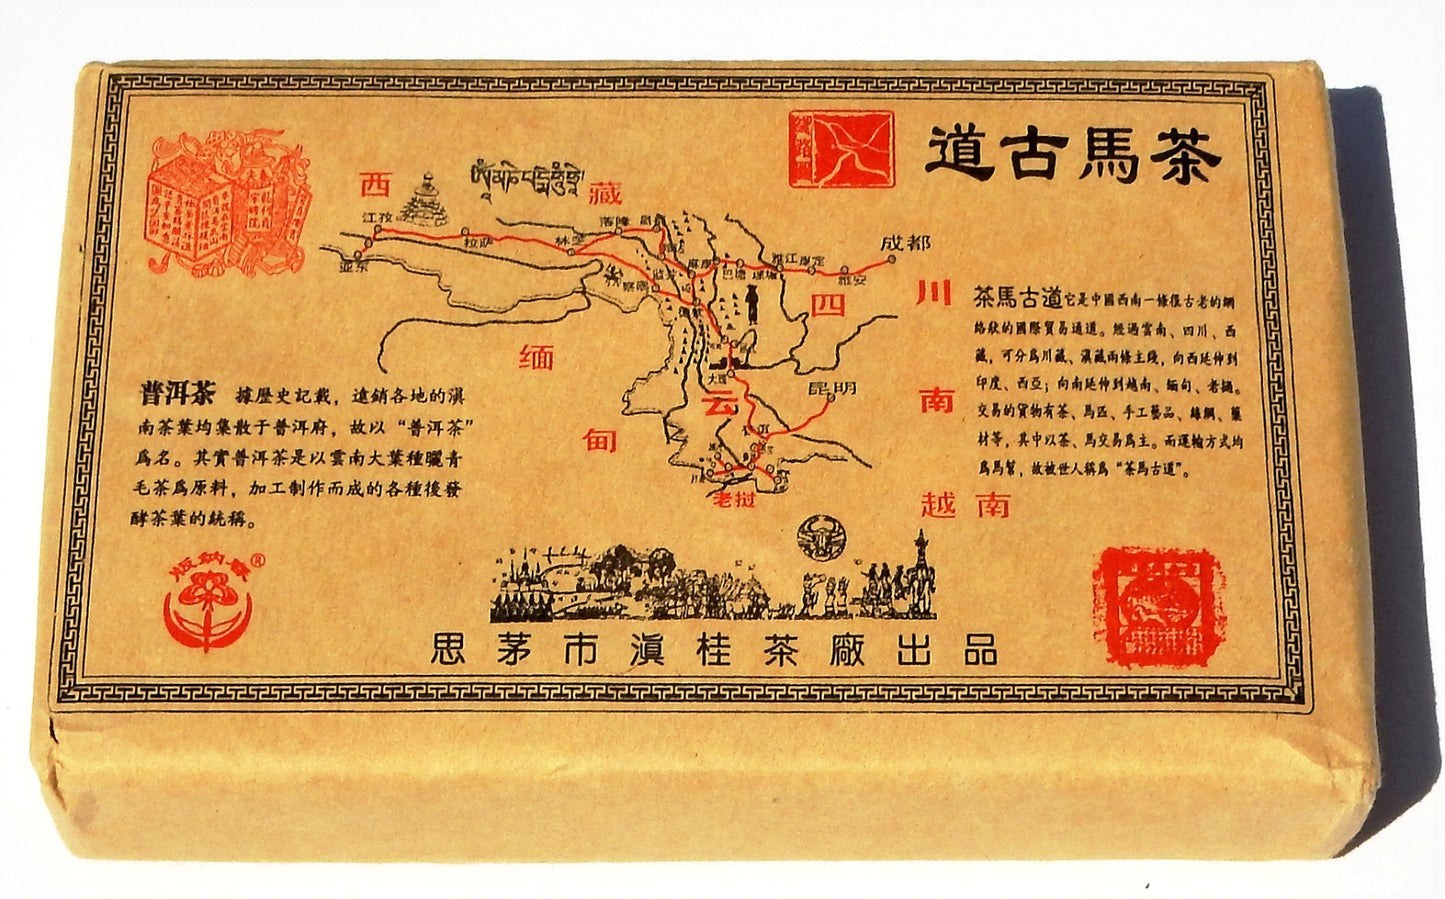 道古馬茶
西藏
江孜
拉萨
林芝
亚东
成都
雅安
四川
茶馬古道它是中國西南一條很古老的網
絡狀的國際貿易通道。經過雲南、四川、西
藏,可分爲川藏、滇藏兩條主綫,向西延伸到
印度、西亞;向南延伸到越南、緬甸、老撾。
交易的貨物有茶、馬匹、手工藝品、絲綢、藥
材等,其中以茶、馬交易爲主。而運輸方式均
爲馬幫,故被世人稱爲“茶馬古道”。
缅甸
大理
昆明
云南
普洱茶 據歷史記載,遠銷各地的滇
南茶葉均集散于普洱府,故以“普洱茶”
爲名。其實普洱茶是以雲南大葉種曬青
毛茶爲原料,加工制作而成的各種後發
酵茶葉的統稱。
老挝
越南
版纳®
思茅市滇桂茶廠出品